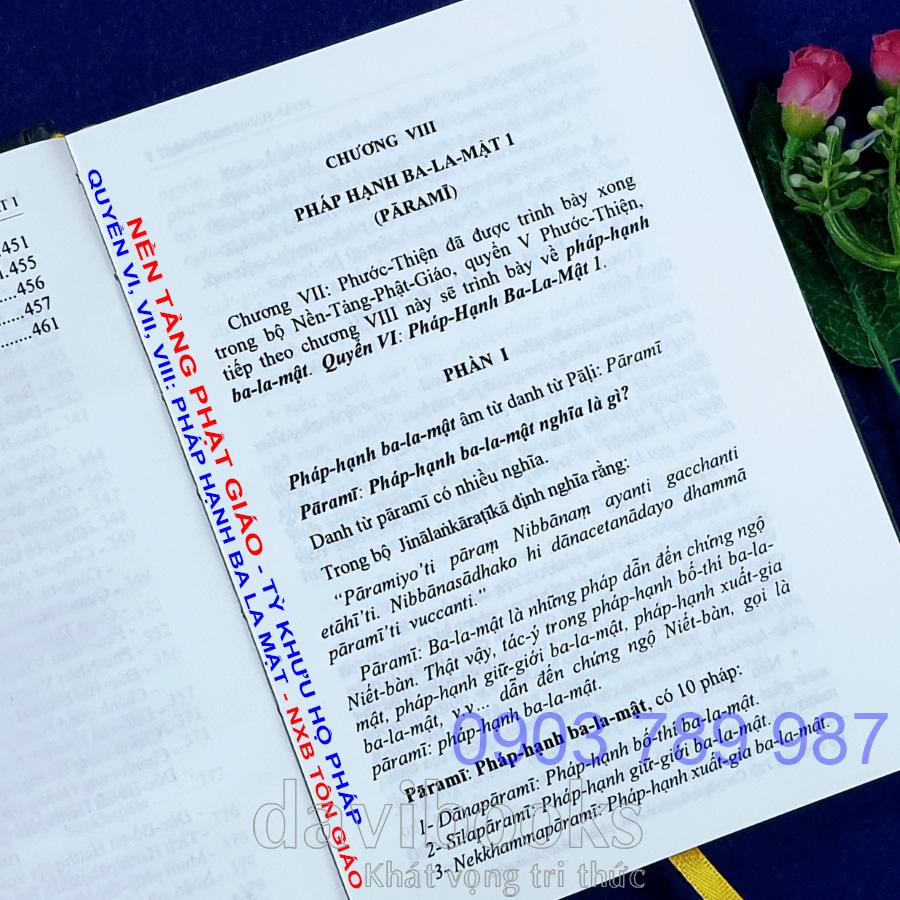 ẬT 1
.451
.455
....456
.......457
.........461
QUYỂN VI, VII, VIII: PHÁP HẠNH BA LA MẬT - NXB TÔN GIÁO
NỀN TẢNG PHẬT GIÁO - TỲ KHƯU HỘ PHÁP
CHƯƠNG VIII
PHÁP HẠNH BA-LA-MẬT 1
(PĀRAMĪ)
Chương VII: Phước-Thiện đã được trình bày xong
trong bộ Nền-Tảng-Phật-Giáo, quyển V Phước-Thiện,
tiếp theo chương VIII này sẽ trình bày về pháp-hạnh
ba-la-mật. Quyển VI: Pháp-Hạnh Ba-La-Mật 1.
PHẦN I
Pháp-hạnh ba-la-mật âm từ danh từ Pāḷi: Pāramī
Pāramī: Pháp-hạnh ba-la-mật nghĩa là gì?
Danh từ pāramī có nhiều nghĩa.
Trong bộ Jinālaṅkāraṭīkā định nghĩa rằng:
“Pāramiyo’ti pāraṃ Nibbānaṃ ayanti gacchanti
etāhī’ti. Nibbānasādhako hi dānacetanādayo dhammā
pāramī’ti vuccanti.”
Pāramī: Ba-la-mật là những pháp dẫn đến chứng ngộ
Niết-bàn. Thật vậy, tác-ý trong pháp-hạnh bố-thí ba-la-
mật, pháp-hạnh giữ-giới ba-la-mật, pháp-hạnh xuất-gia
ba-la-mật, v.v... dẫn đến chứng ngộ Niết-bàn, gọi là
pāramī: pháp-hạnh ba-la-mật.
Pāramī: Pháp-hạnh ba-la-mật, có 10 pháp:
1- Dānapāramī: Pháp-hạnh bố-thí ba-la-mật.
2- Sīlapāramī: Pháp-hạnh giữ-giới ba-la-mật.
3- Nekkhammapāramī: Pháp-hạnh xuất-gia ba-la-mật.
0903 789 987
davibooks
Khát vọng tri thức